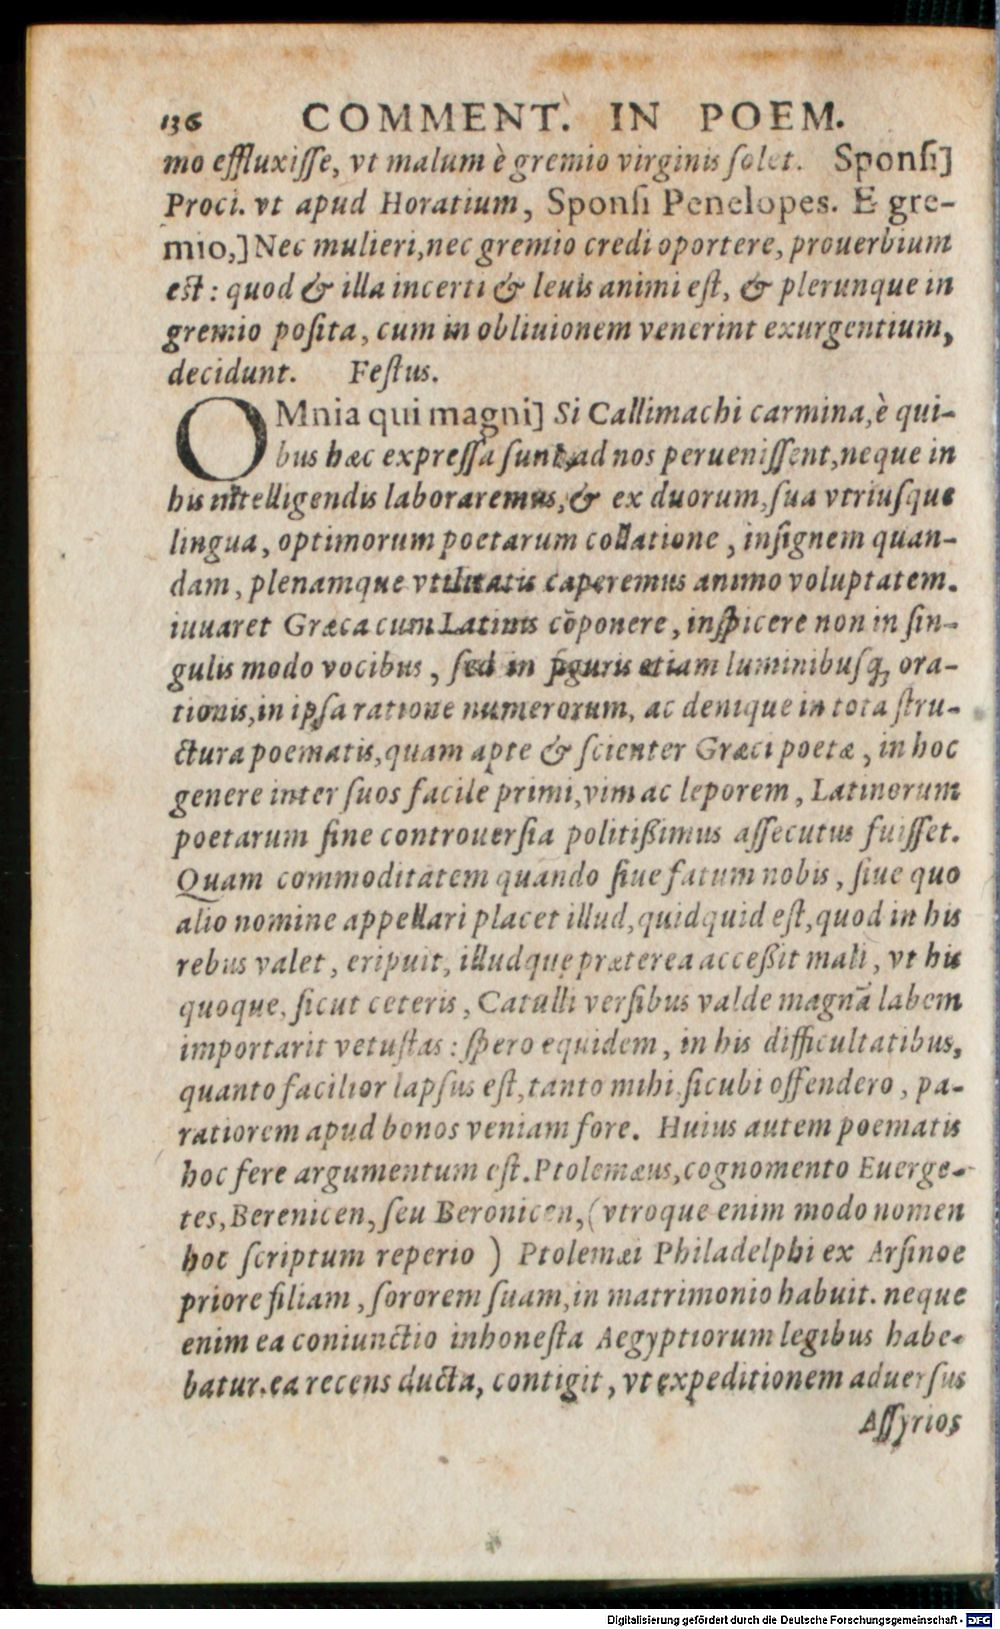 136 COMMENT. IN POEM.
mo effluxiſſe, vt malum è gremio virginis ſolet. Sponſi]
Proci. vt apud Horatium, Sponſi Penelopes. E gre-
mio,] Nec mulieri, nec gremio credi oportere, prouerbium
eſt: quod & illa incerti & leuis animi eſt, & plerunque in
gremio poſita, cum in obliuionem venerint exurgentium,
decidunt. Feſtus.
OMnia qui magni] Si Callimachi carmina, è qui-
bus hæc expreſſa ſunt, ad nos perueniſſent, neque in
his intelligendis laboraremus, & ex duorum, ſua vtriuſque
lingua, optimorum poetarum collatione, inſignem quan-
dam, plenamque vtilitatis caperemus animo voluptatem.
iuuaret Græca cum Latinis cōponere, inſpicere non in ſin-
gulis modo vocibus, ſed in figuris etiam luminibuſq, ora-
tionis, in ipſa ratione numerorum, ac denique in tota ſtru-
ctura poematis, quam apte & ſcienter Græci poetæ, in hoc
genere inter ſuos facile primi, vim ac leporem, Latinorum
poetarum ſine controuerſia politißimus aſſecutus fuiſſet.
Quam commoditatem quando ſiue fatum nobis, ſiue quo
alio nomine appellari placet illud, quidquid eſt, quod in his
rebus valet, eripuit, illudque præterea acceßit mali, vt his
quoque, ſicut ceteris, Catulli verſibus valde magnā labem
importarit vetuſtas: ſpero equidem, in his difficultatibus,
quanto facilior lapſus eſt, tanto mihi, ſicubi offendero, pa-
ratiorem apud bonos veniam fore. Huius autem poematis
hoc fere argumentum eſt. Ptolemæus, cognomento Euerge-
tes, Berenicen, ſeu Beronicen, (vtroque enim modo nomen
hoc ſcriptum reperio) Ptolemæi Philadelphi ex Arſinoe
priore filiam, ſororem ſuam, in matrimonio habuit. neque
enim ea coniunctio inhoneſta Aegyptiorum legibus habe-
batur. ea recens ducta, contigit, vt expeditionem aduerſus
Aſſyrios
Digitalisierung gefördert durch die Deutsche Forschungsgemeinschaft - DFG